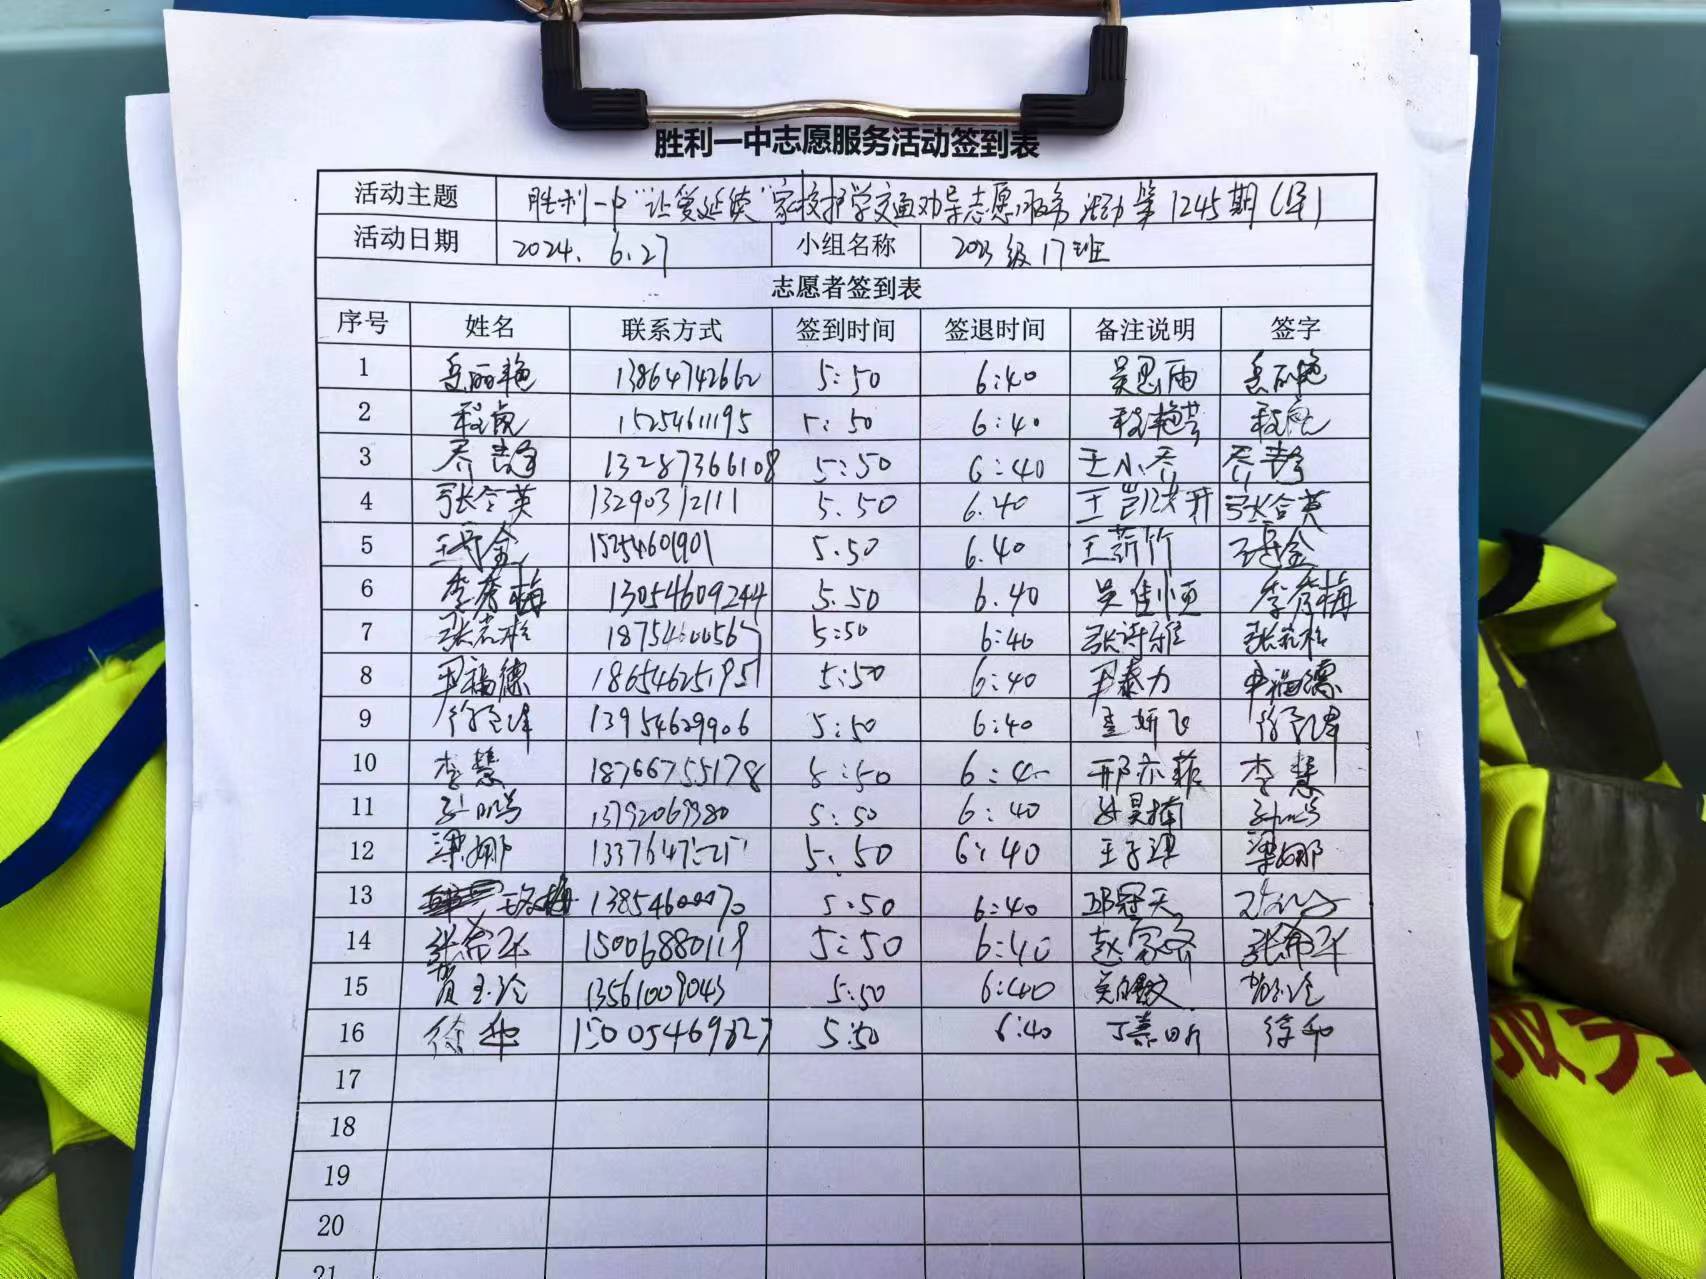 胜利一中志愿服务活动签到表
活动主题 胜利一中"让爱延续"家校护学交通劝导志愿服务活动第1245期(早)
活动日期 2024.6.27 小组名称 2023级17班
志愿者签到表
序号 姓名 联系方式 签到时间 签退时间 备注说明 签字
1 岳丽艳 13864742662 5:50 6:40 吴思雨 岳丽艳
2 程虎 1525461195 5:50 6:40 程艳芸 程虎
3 乔静 13287366108 5:50 6:40 王小乔 乔静
4 张合英 13290312111 5.50 6.40 张合英
5 15254601901 5.50 6.40 王菥竹
6 李秀梅 13054609244 5.50 6.40 李秀梅
7 张岩松 5:50 6:40 张诗雅 张岩松
8 尹福德 18654625195 5:50 6:40 尹泰力 尹福德
9 13954629906 5:50 6:40
10 李慧 18766755178 5:50 6:4 邢亦菲 李慧
11 孙鹏 13792069380 5:50 6:40 孙昊楠 孙鹏
12 梁娜 5:50 6:40 王子淇 梁娜
13 5:50 6:40 邱冠天
14 15006880119 5:50 6:40 赵家齐
15 贾玉玲 13561009043 5:50 6:40
16 徐和 15005469327 5:50 6:40 丁熹昕 徐和
17
18
19
20
21